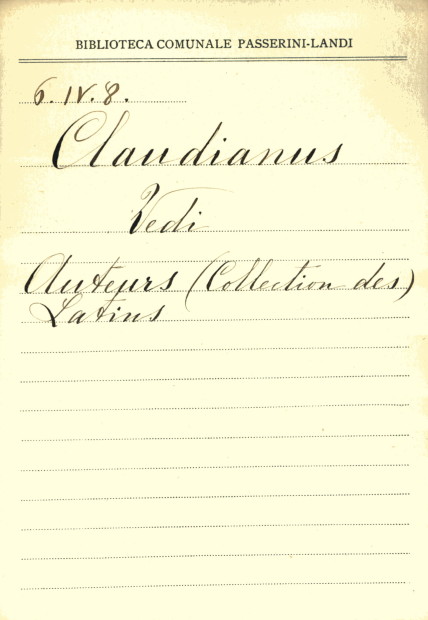 BIBLIOTECA COMUNALE PASSERINI-LANDI
6. IV. 8.
Claudianus
Vedi
Auteurs (Collection des)
Latins